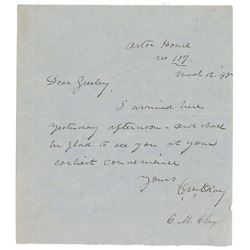 Astor House
No. 107.
March 12. '48
Dear Greeley,
I arrived here
yesterday afternoon - and shall
be glad to see you at your
earliest convenience
Yours
C M Clay
C. M. Clay